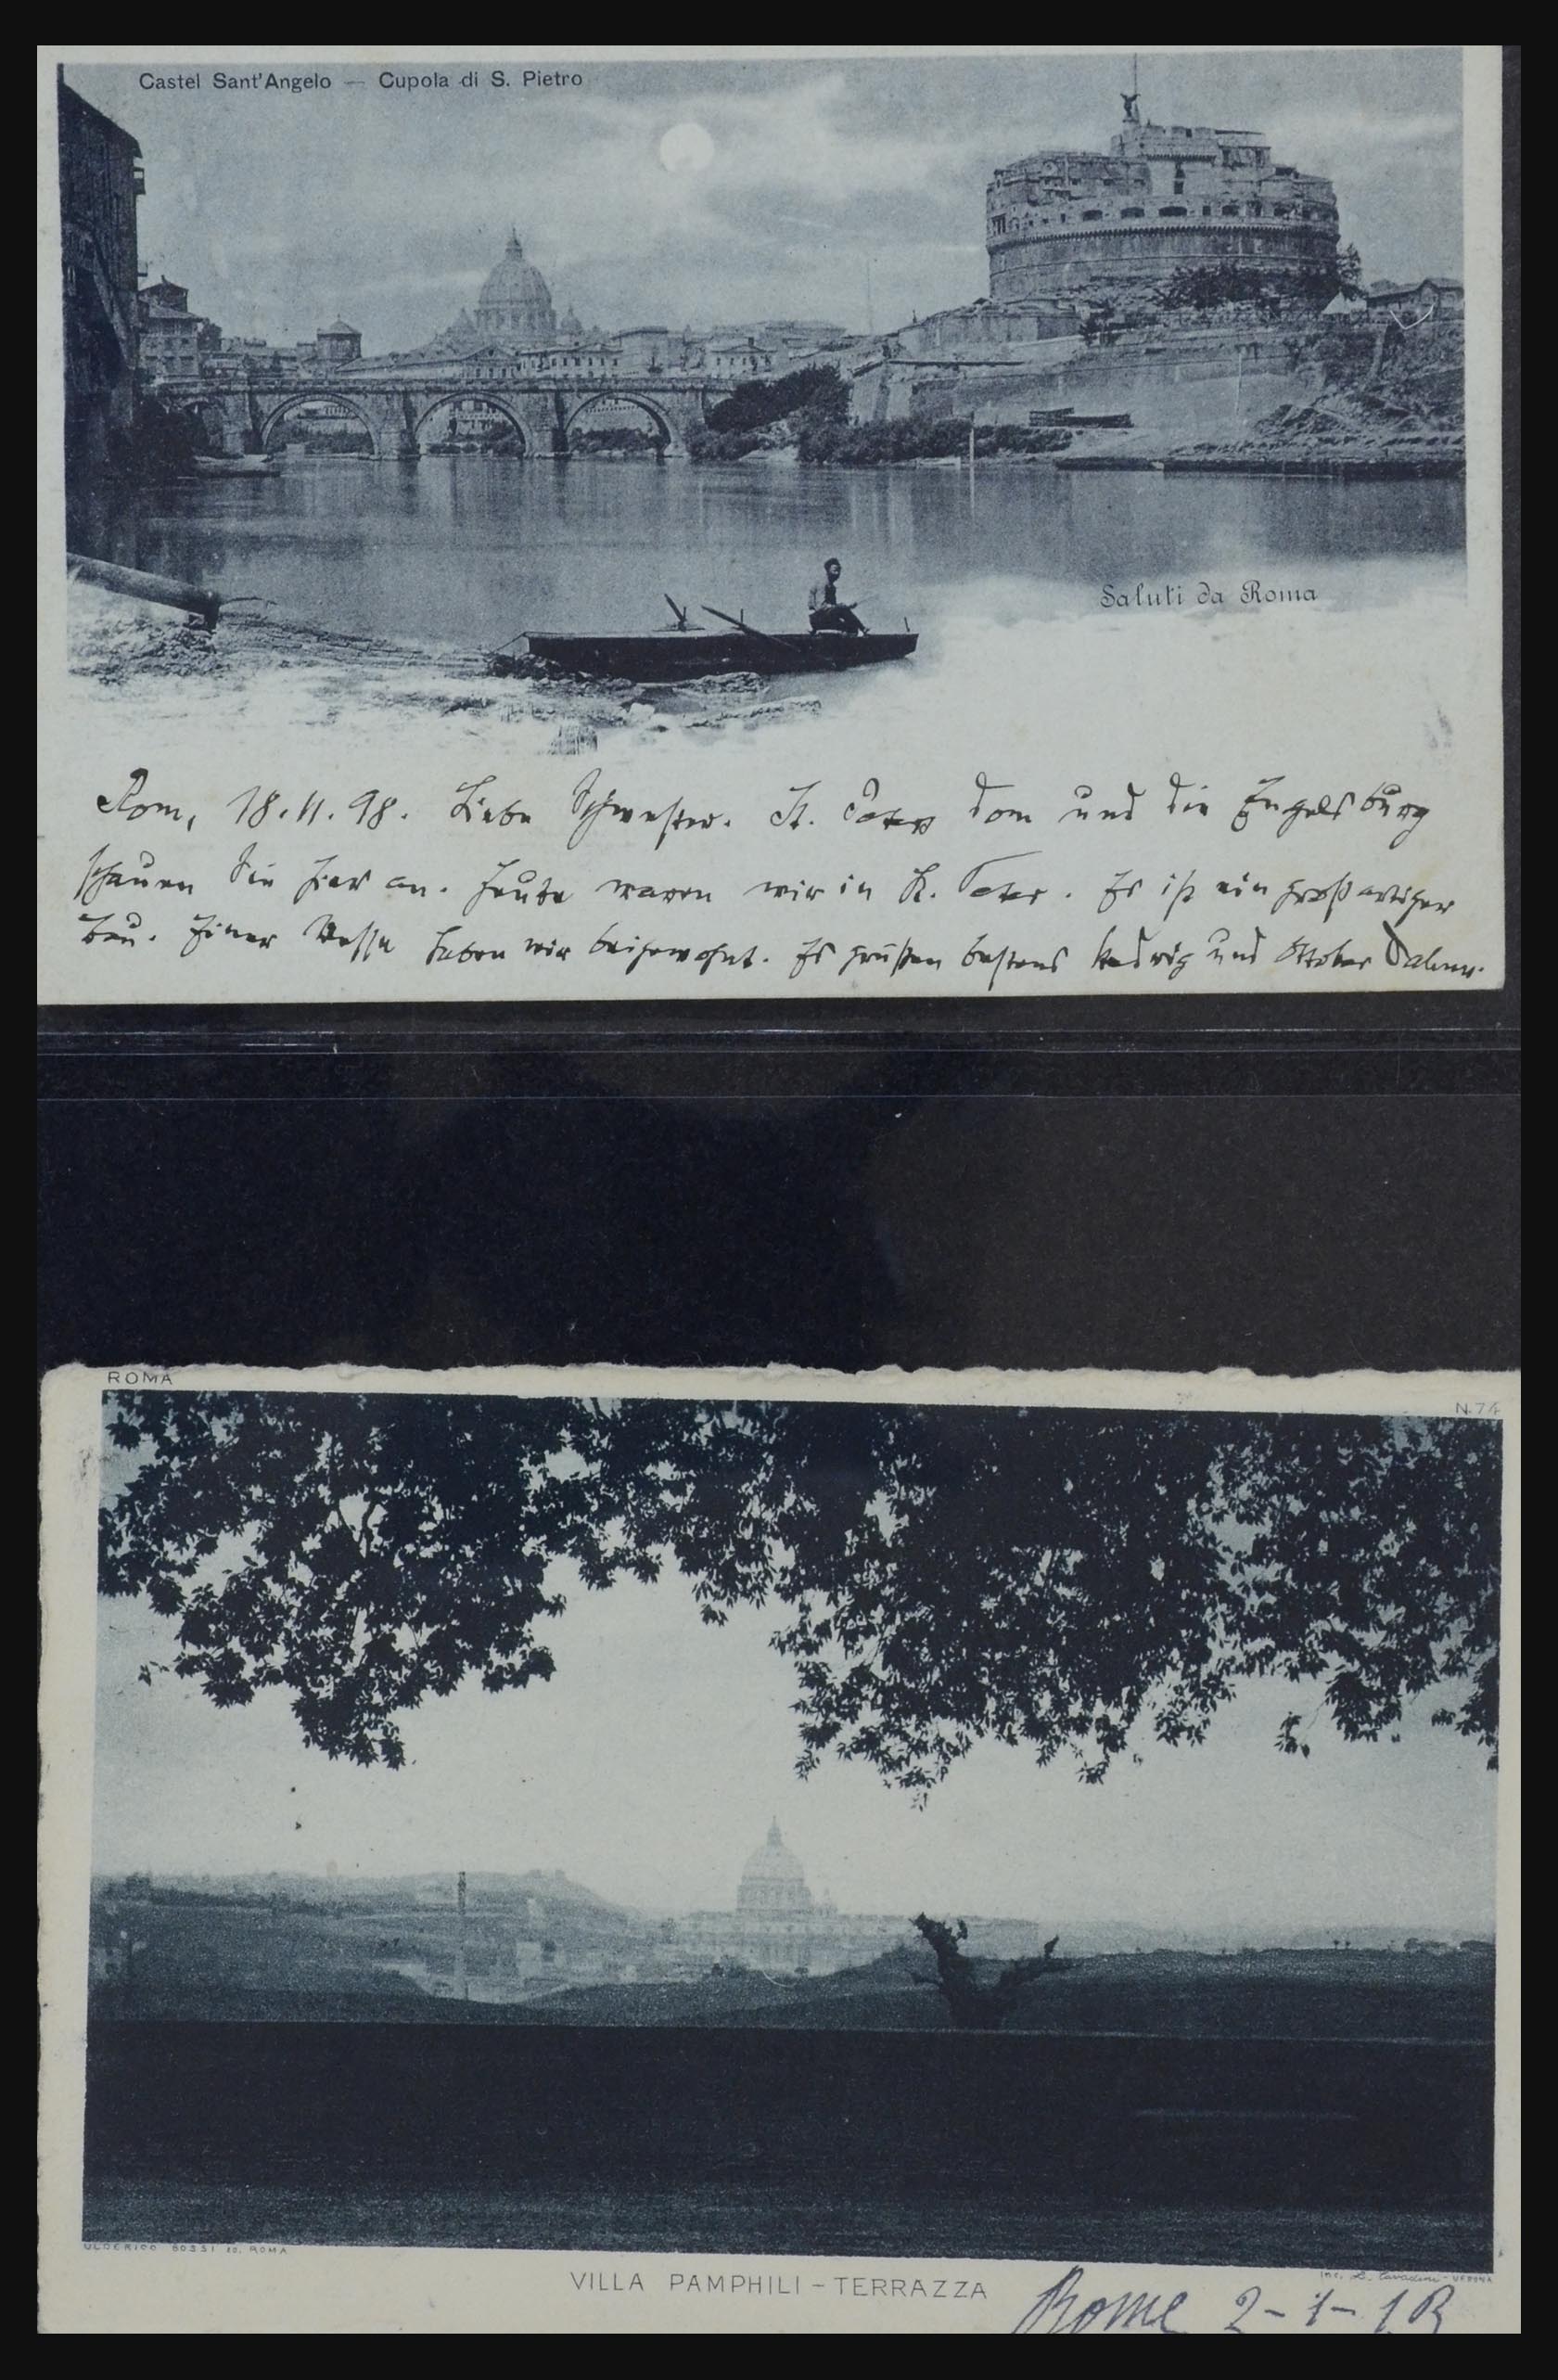 Castel Sant'Angelo — Cupola di S. Pietro
Saluti da Roma
Rom, 18.11.98. Liebe Schwester. St. Peters Dom und die Engelsburg
schauen Sie hier an. Heute waren wir in St. Peter. Es ist ein großartiger
Bau. Einer Messe haben wir beigewohnt. Es grüßen bestens Hedwig und
ROMA
N.74
ULDERICO BOSSI ED. ROMA
VILLA PAMPHILI - TERRAZZA
Rome 2-1-